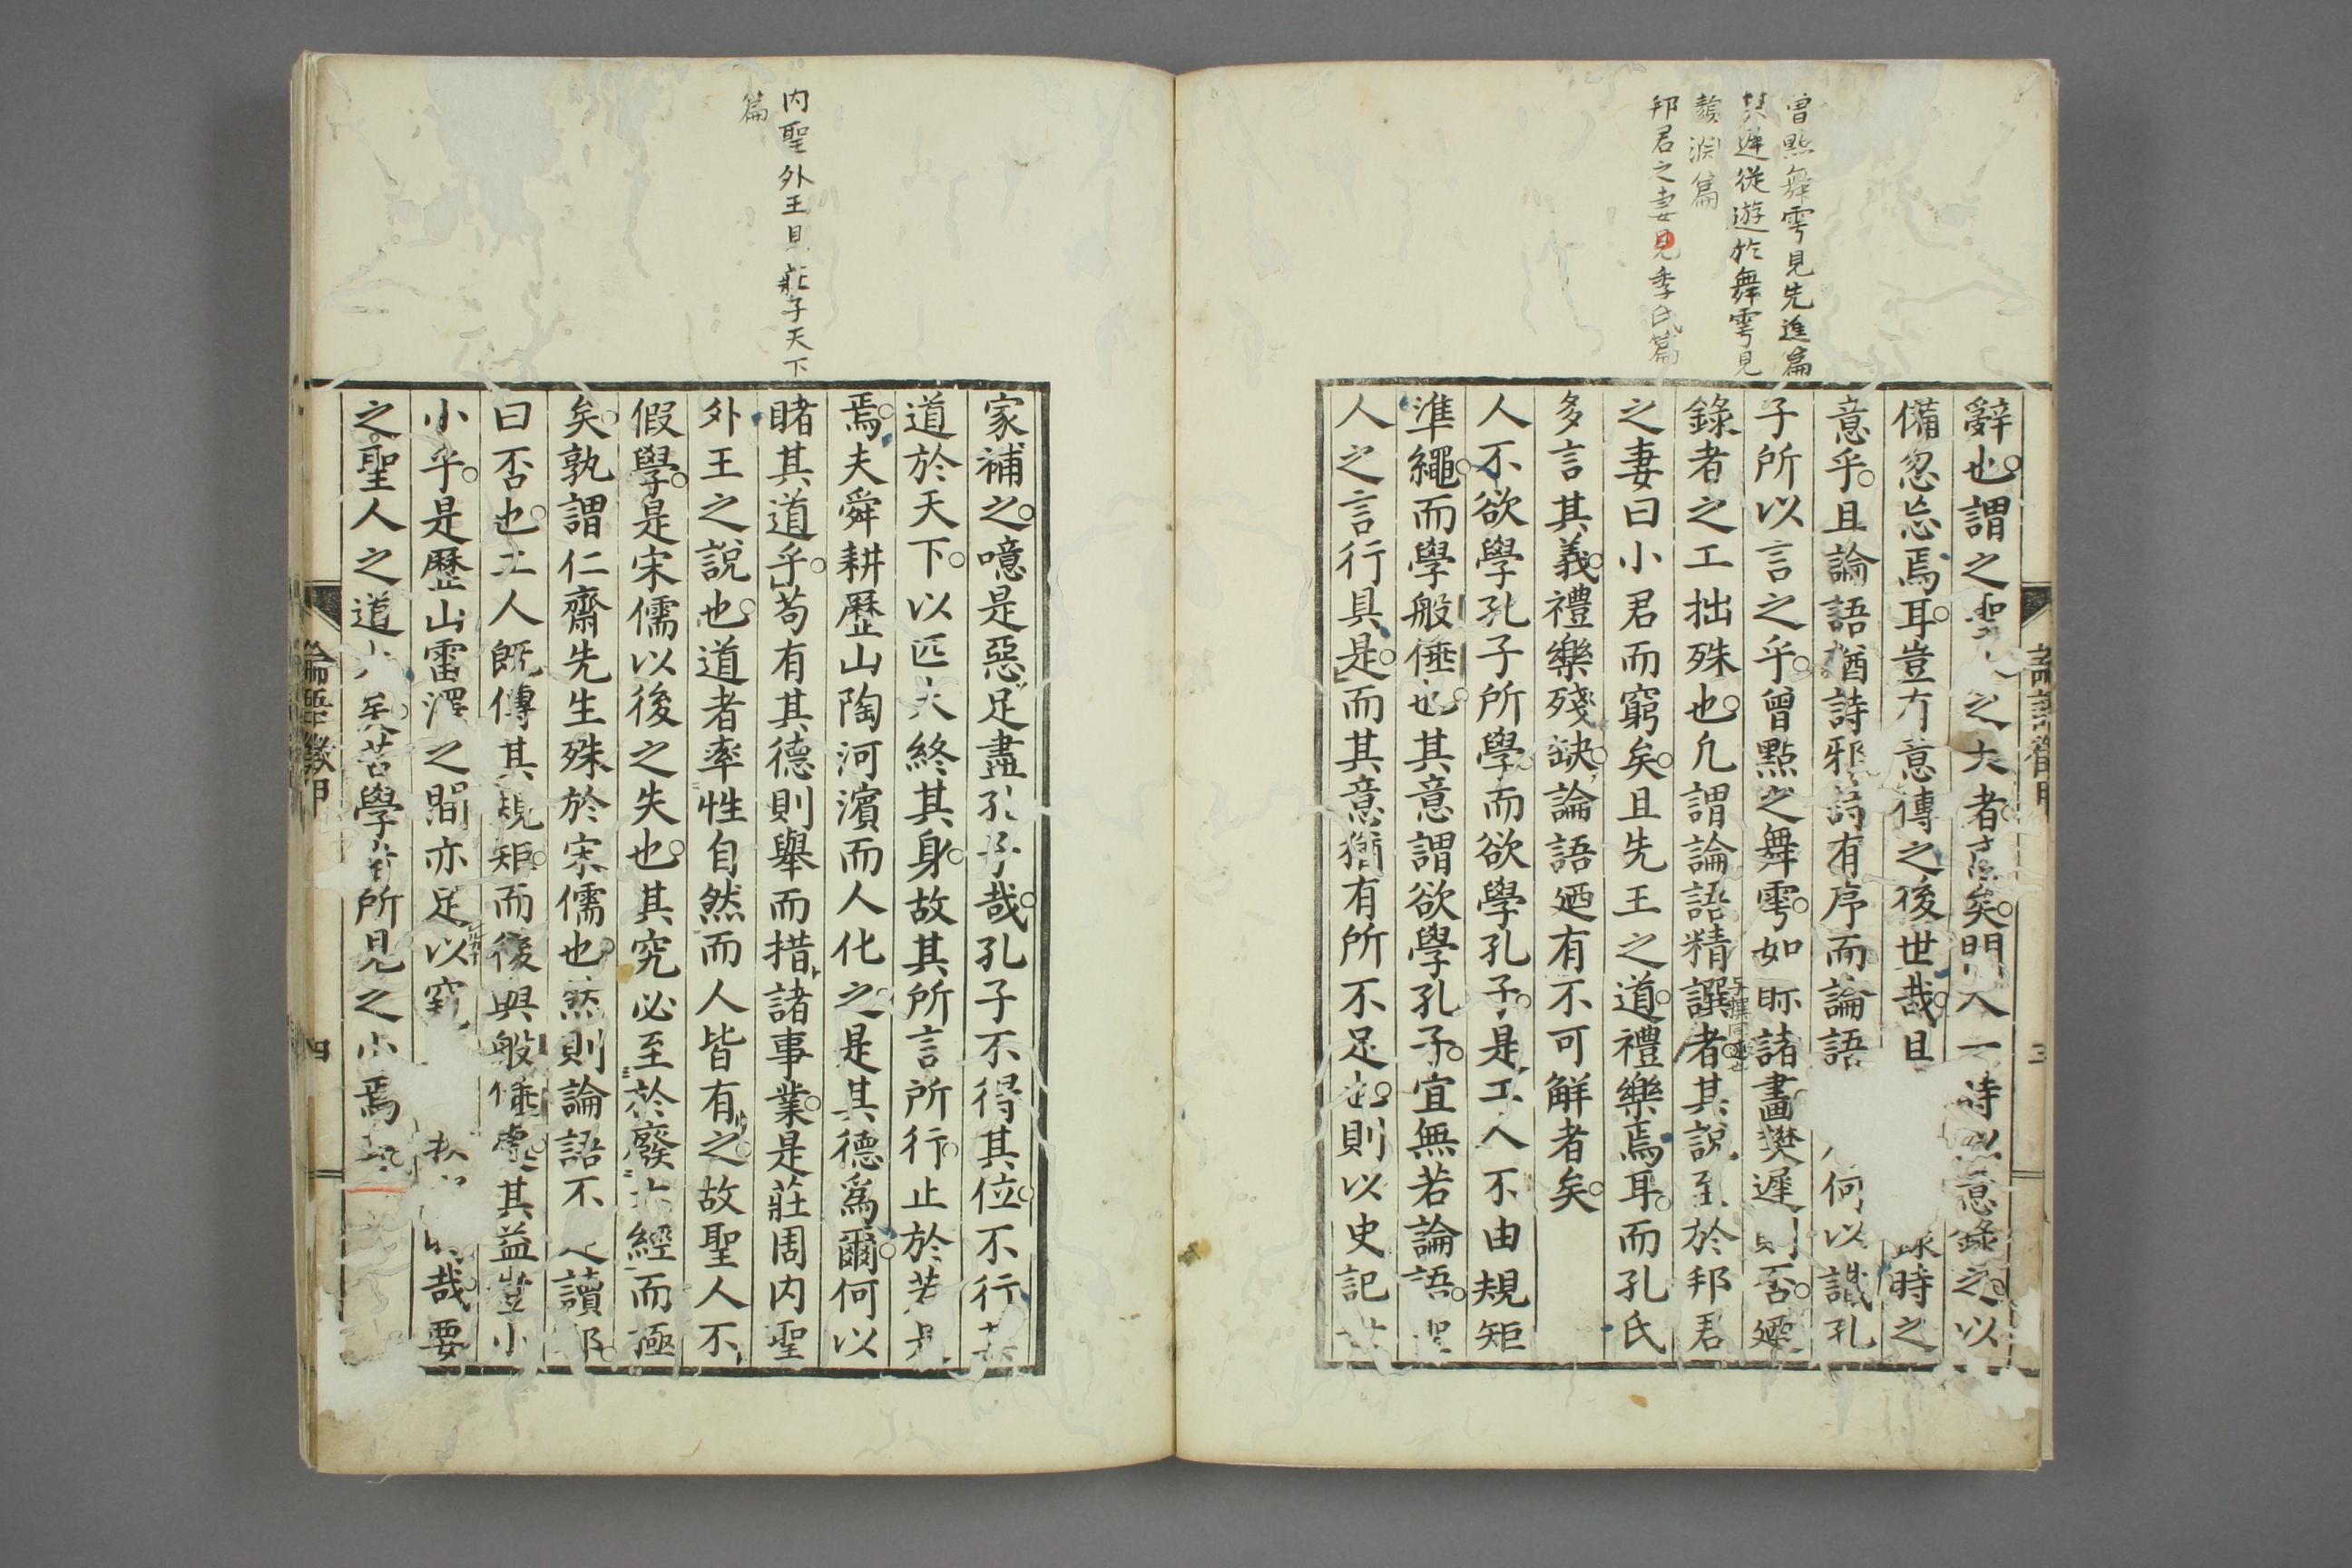 曾點舞雩見先進篇
樊遲從遊於舞雩見
顏淵篇
邦君之妻見季氏篇
辭也謂之聖之大者矣門人一時以意錄之以
備忽忘焉耳豈有意傳之後世哉且錄時之
意乎且論語猶詩邪詩有序而論語何以識孔
子所以言之乎曾點之舞雩如眎諸畫樊遲則否
錄者之工拙殊也凡謂論語精譔者其說至於邦君
之妻曰小君而窮矣且先王之道禮樂焉耳而孔氏
多言其義禮樂殘缺論語廼有不可解者矣
人不欲學孔子所學而欲學孔子是工人不由規矩
準繩而學般倕也其意謂欲學孔子宜無若論語聖
人之言行具是而其意猶有所不足也則以史記世
三
内聖外王見莊子天下
篇
家補之噫是惡足盡孔子哉孔子不得其位不行其
道於天下以匹夫終其身故其所言所行止於若是
焉夫舜耕歷山陶河濱而人化之是其德爲爾何以
睹其道乎苟有其德則舉而措諸事業是莊周内聖
外王之說也道者率性自然而人皆有之故聖人不
假學是宋儒以後之失也其究必至於廢六經而極
矣孰謂仁齋先生殊於宋儒也然則論語不讀邪
曰否也工人旣傳其規矩而後與般倕處其益豈小
小乎是歷山雷澤之間亦足以窺哉要
之聖人之道大矣苦學者所見之小焉
論語徵甲
四